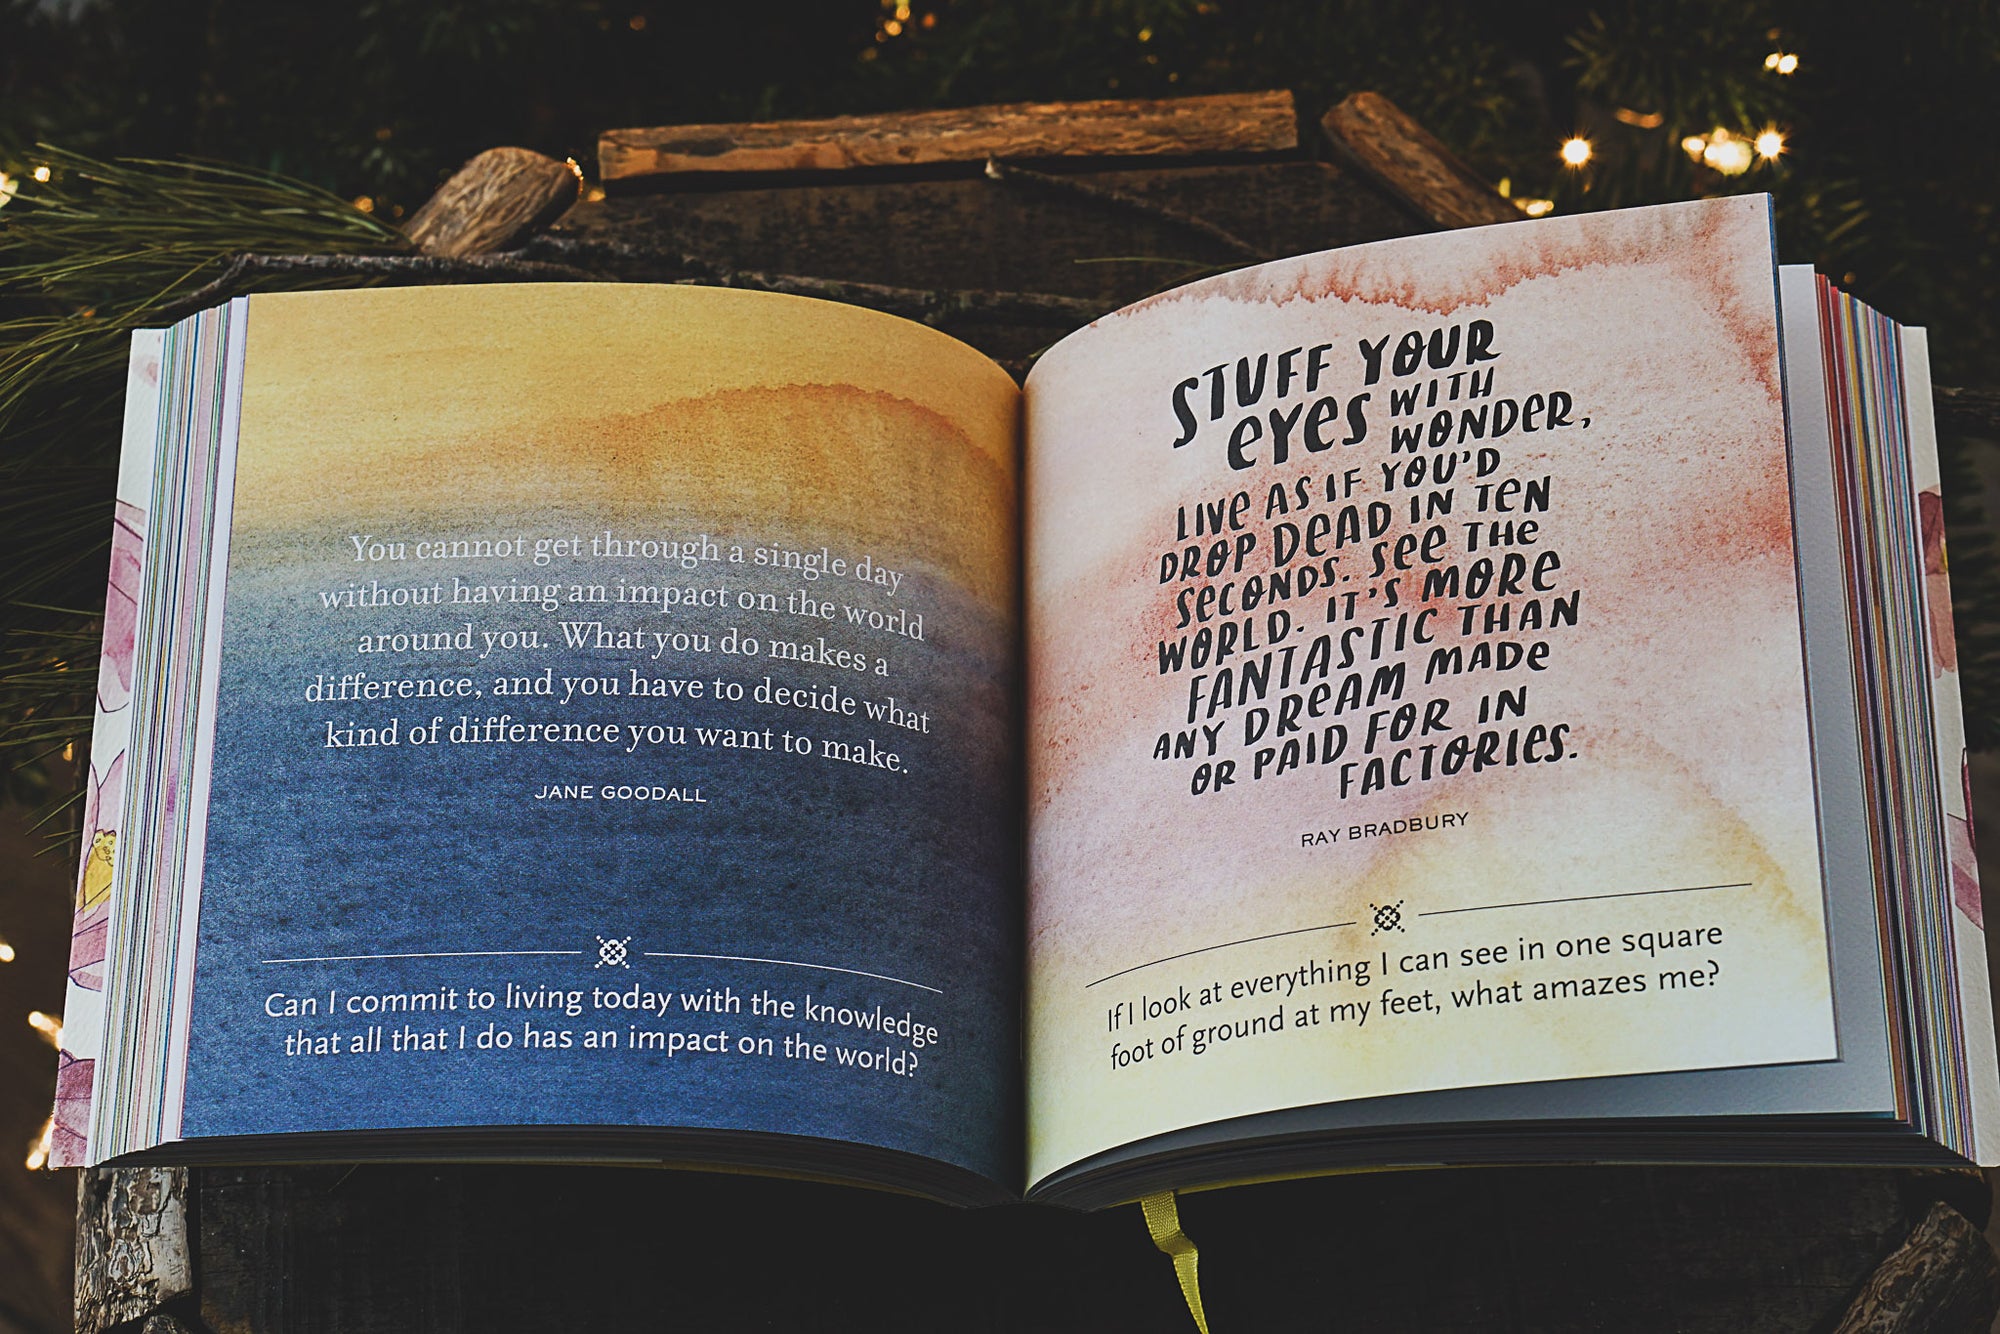 You cannot get through a single day
without having an impact on the world
around you. What you do makes a
difference, and you have to decide what
kind of difference you want to make.
JANE GOODALL
Can I commit to living today with the knowledge
that all that I do has an impact on the world?
STUFF YOUR
eYes WITH
WONDER,
LIVE AS IF YOU'D
DROP DEAD IN TEN
SECONDS. SEE THE
WORLD. IT'S MORE
FANTASTIC THAN
ANY DREAM MADE
OR PAID FOR IN
FACTORIES.
RAY BRADBURY
If I look at everything I can see in one square
foot of ground at my feet, what amazes me?